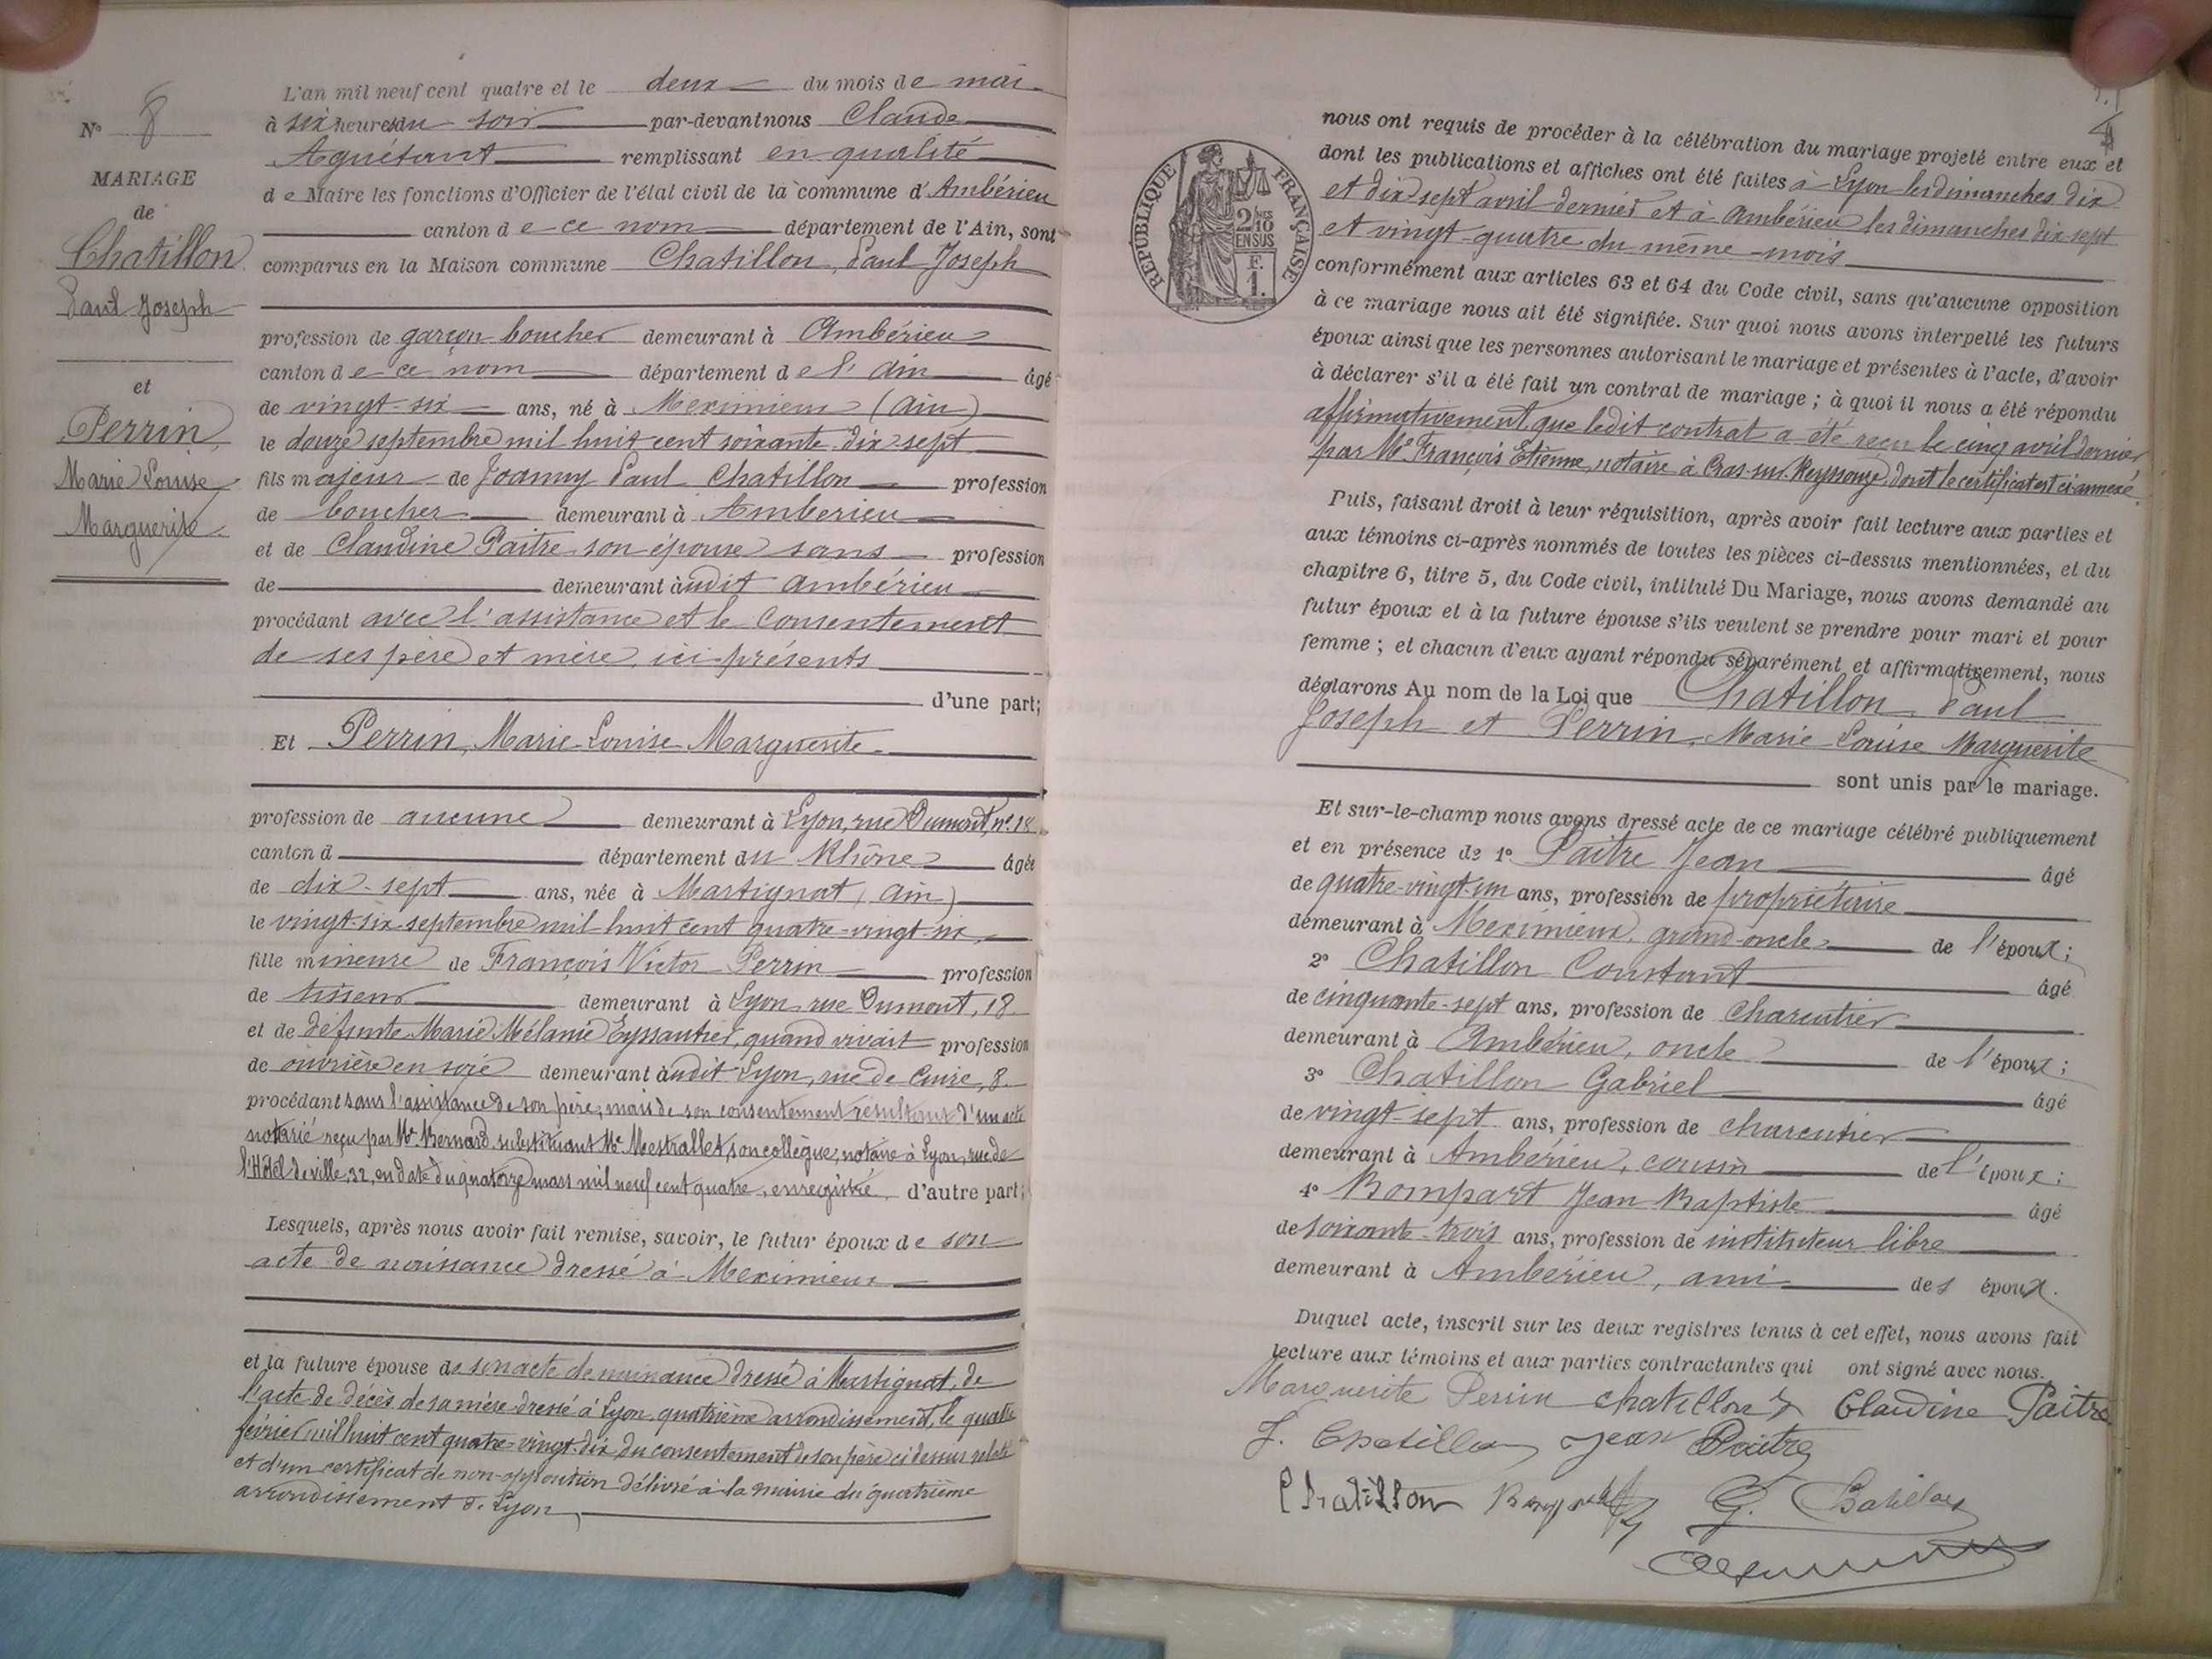 N° 8
MARIAGE
de
Chatillon
Paul Joseph
et
Perrin
Marie Louise
Marguerite
L'an mil neuf cent quatre et le deux du mois de mai
à six heures du soir par-devant nous Claude
Aguétant remplissant en qualité
de Maire les fonctions d'Officier de l'état civil de la commune d'Ambérieu
canton de ce nom département de l'Ain, sont
comparus en la Maison commune Chatillon, Paul Joseph
profession de garçon boucher demeurant à Ambérieu
canton de ce nom département de l'Ain âgé
de vingt-six ans, né à Meximieux (Ain)
le douze septembre mil huit cent soixante-dix-sept
fils majeur de Joanny Paul Chatillon profession
de boucher demeurant à Amberieu
et de Claudine Paitre son épouse sans profession
de demeurant àudit Ambérieu
procédant avec l'assistance et le consentement
de ses père et mère, ici présents
d'une part;
Et Perrin, Marie-Louise Marguerite
profession de aucune demeurant à Lyon, rue Dumont, n° 18
canton d département du Rhône âgée
de dix-sept ans, née à Martignat (Ain)
le vingt-six septembre mil huit cent quatre-vingt-six
fille mineure de François Victor Perrin profession
de tisseur demeurant à Lyon rue Dumont, 18
et de défunte Marie Mélanie Eyssautier, quand vivait profession
de ouvrière en soie demeurant àudit Lyon, rue de Cuire, 8
procédant sans l'assistance de son père, mais de son consentement résultant d'un acte
notarié reçu par Me Bernard substituant Me Mestrallet, son collègue, notaire à Lyon, rue de
l'Hôtel de ville, 32, en date du quatorze mars mil neuf cent quatre, enregistré d'autre part;
Lesquels, après nous avoir fait remise, savoir, le futur époux de son
acte de naissance dressé à Meximieux
et la future épouse de son acte de naissance dressé à Martignat, de
l'acte de décès de sa mère dressé à Lyon, quatrième arrondissement, le quatre
février mil huit cent quatre-vingt-dix, du consentement de son père ci dessus relaté
et d'un certificat de non-opposition délivré à la mairie du quatrième
arrondissement de Lyon
RÉPUBLIQUE FRANÇAISE
2/10MES
EN SUS
F.
1.
nous ont requis de procéder à la célébration du mariage projeté entre eux et
dont les publications et affiches ont été faites à Lyon les dimanches dix
et dix-sept avril dernier et à Ambérieu les dimanches dix-sept
et vingt-quatre du même mois
conformément aux articles 63 et 64 du Code civil, sans qu'aucune opposition
à ce mariage nous ait été signifiée. Sur quoi nous avons interpellé les futurs
époux ainsi que les personnes autorisant le mariage et présentes à l'acte, d'avoir
à déclarer s'il a été fait un contrat de mariage; à quoi il nous a été répondu
affirmativement que ledit contrat a été reçu le cinq avril dernier
par Me François Etienne, notaire à Cras-sur-Reyssouze, dont le certificat est ci-annexé
Puis, faisant droit à leur réquisition, après avoir fait lecture aux parties et
aux témoins ci-après nommés de toutes les pièces ci-dessus mentionnées, et du
chapitre 6, titre 5, du Code civil, intitulé Du Mariage, nous avons demandé au
futur époux et à la future épouse s'ils veulent se prendre pour mari et pour
femme; et chacun d'eux ayant répondu séparément et affirmativement, nous
déclarons Au nom de la Loi que Chatillon, Paul
Joseph et Perrin, Marie Louise Marguerite
sont unis par le mariage.
Et sur-le-champ nous avons dressé acte de ce mariage célébré publiquement
et en présence de 1° Paitre Jean âgé
de quatre-vingt-un ans, profession de propriétaire
demeurant à Meximieux, grand-oncle de l'époux;
2° Chatillon Constant âgé
de cinquante-sept ans, profession de Charcutier
demeurant à Ambérieu, oncle de l'époux;
3° Chatillon Gabriel âgé
de vingt-sept ans, profession de charcutier
demeurant à Ambérieu, cousin de l'époux;
4° Bompart Jean Baptiste âgé
de soixante-trois ans, profession de instituteur libre
demeurant à Ambérieu, ami des époux.
Duquel acte, inscrit sur les deux registres tenus à cet effet, nous avons fait
lecture aux témoins et aux parties contractantes qui ont signé avec nous.
Marguerite Perrin Chatillon Claudine Paitre
J. Chatillon Jean Paitre
Chatillon Bompart G. Chatillon